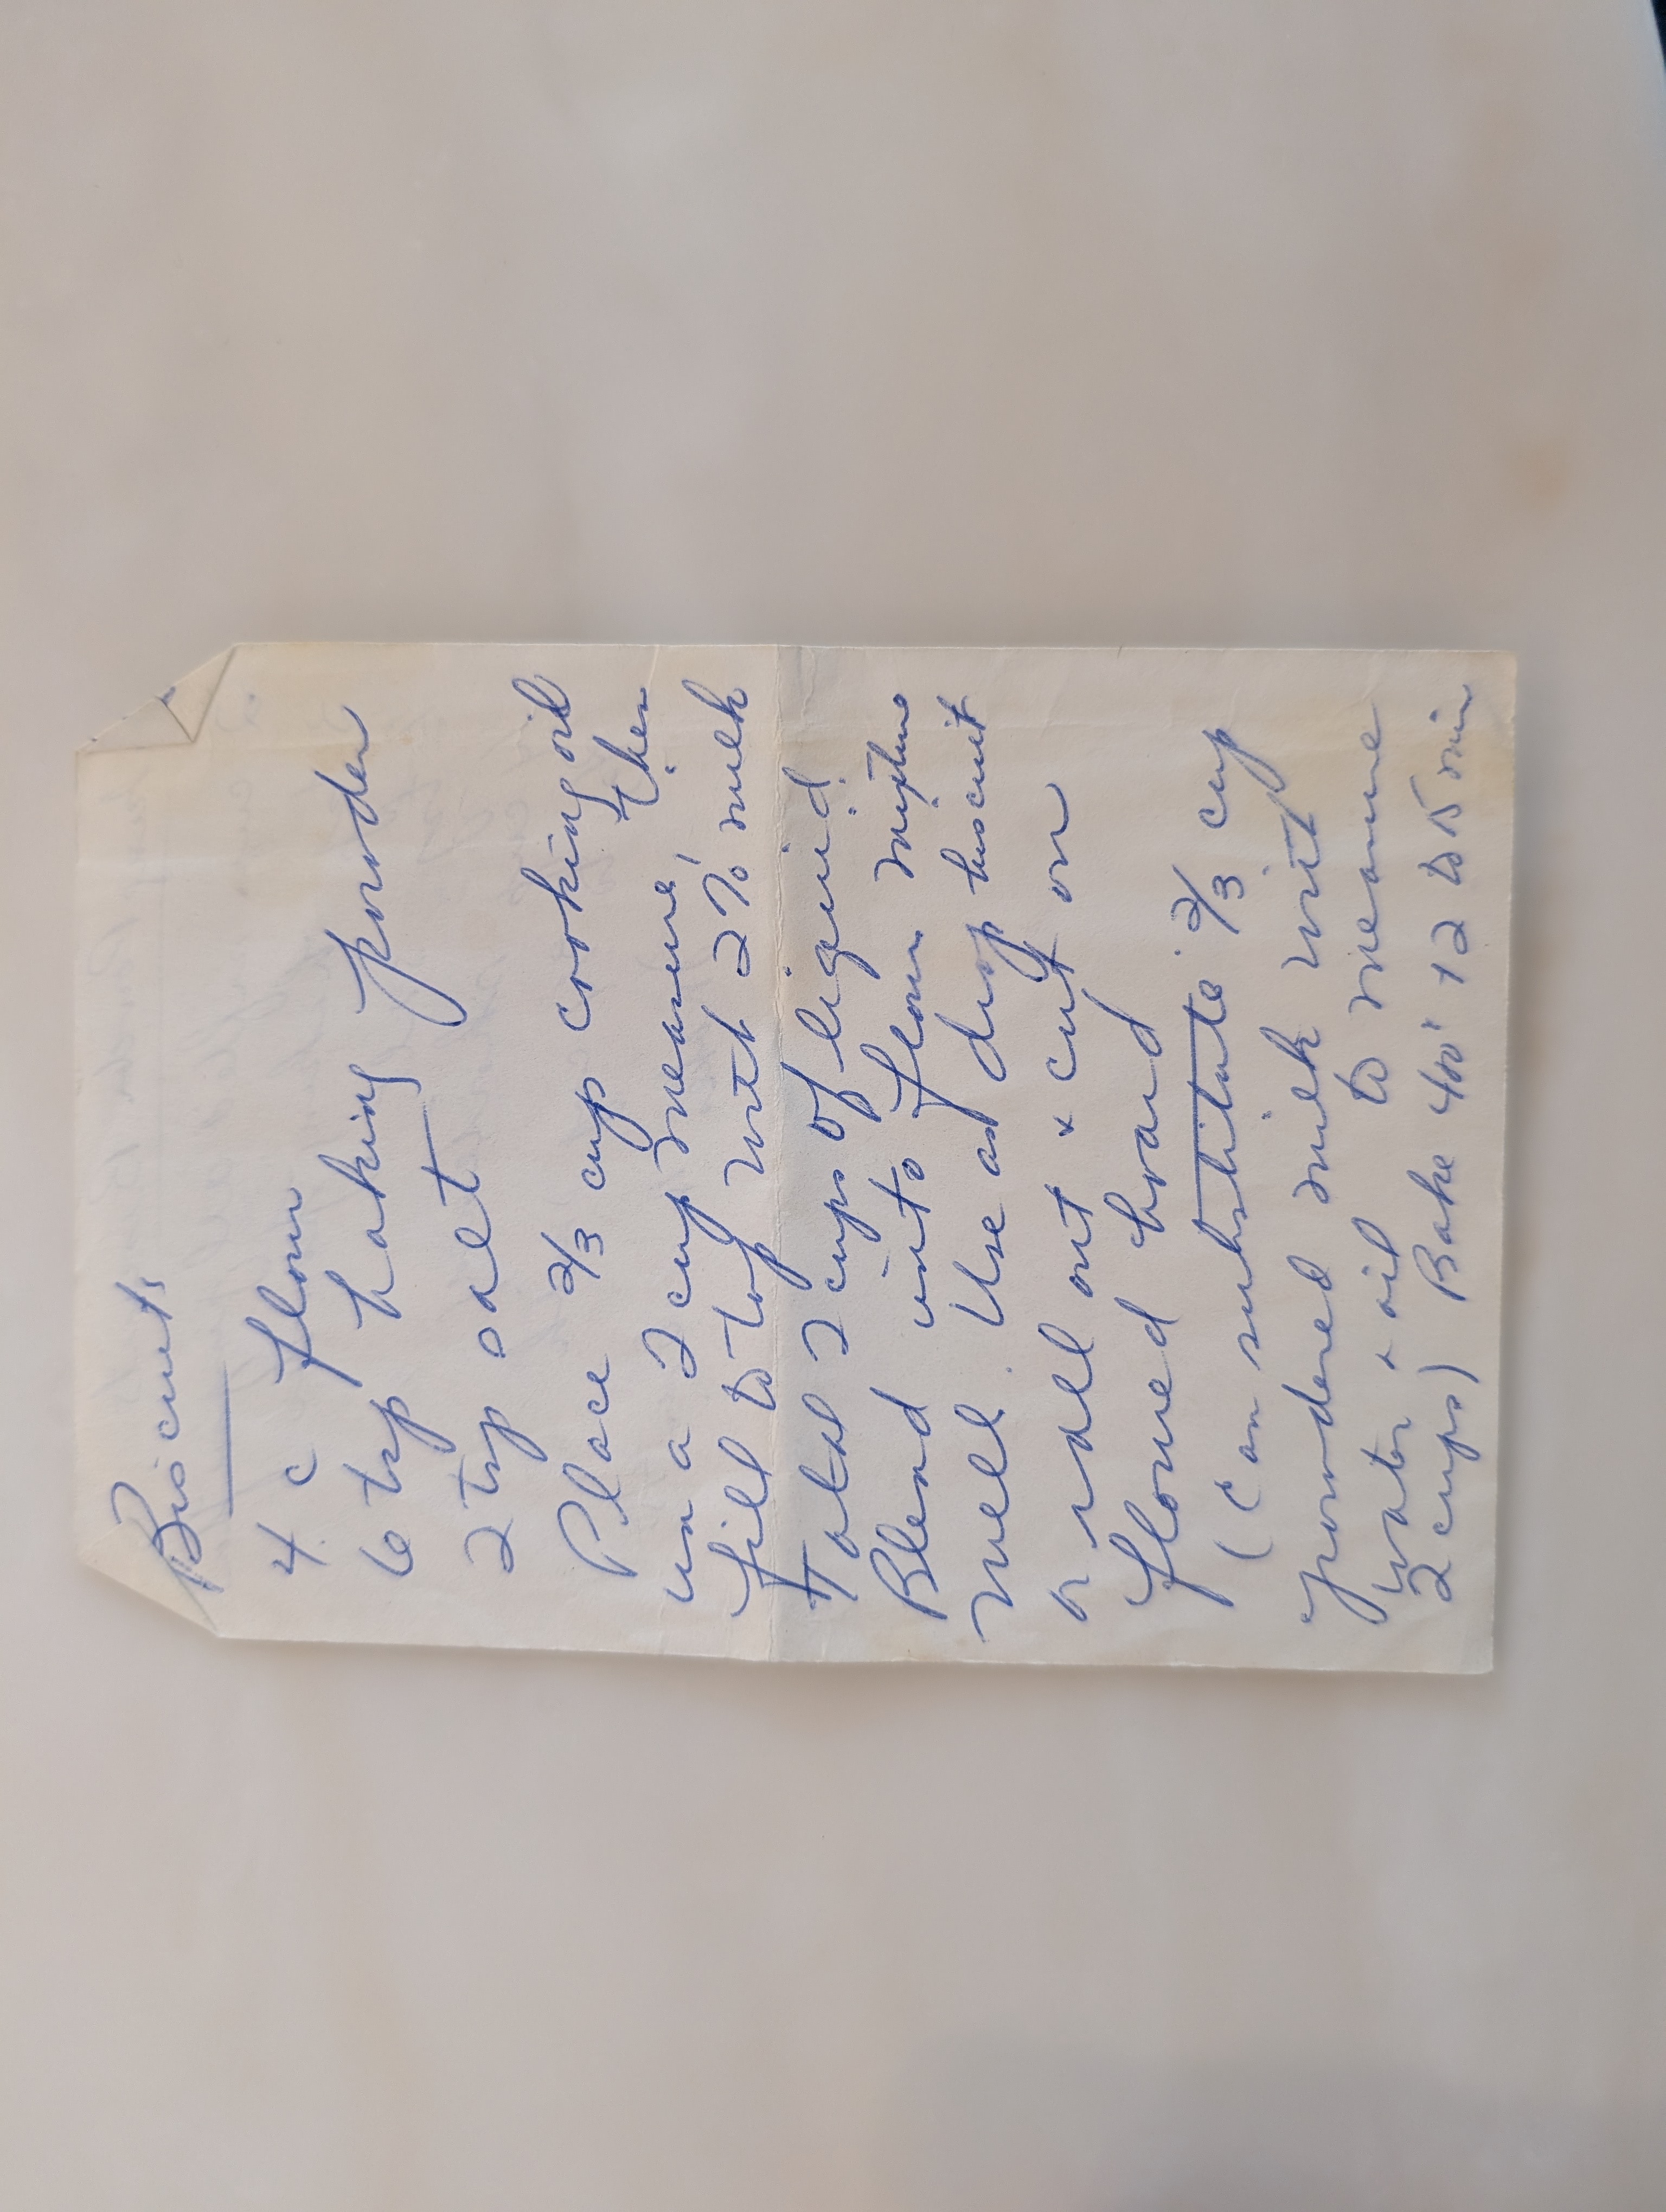 Biscuits
4 c flour
6 tsp baking powder
2 tsp salt
Place 2/3 cup cooking oil
in a 2 cup measure, then
fill to top with 2% milk
Total 2 cups of liquid.
Blend into flour mixture
well. Use as drop biscuit
or roll out & cut on
floured board.
(Can substitute 2/3 cup
powdered milk with
water & oil to measure
2 cups) Bake 400° 12 to 15 min